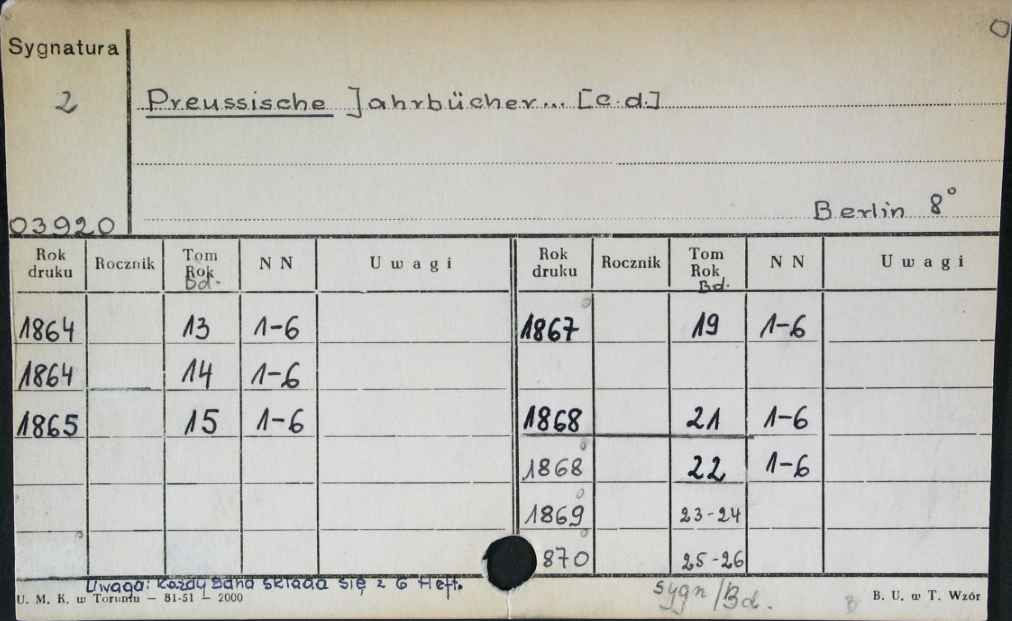 Sygnatura
2
03920
Preussische Jahrbücher... [c.d.]
Berlin 8°
Rok druku Rocznik Tom Rok Bd. N N Uwagi Rok druku Rocznik Tom Rok Bd. N N Uwagi
1864 13 1-6 1867 19 1-6
1864 14 1-6
1865 15 1-6 1868 21 1-6
1868 22 1-6
1869 23-24
870 25-26
Uwaga: Każdy Band składa się z 6 Heft.
sygn/Bd.
U. M. K. w Toruniu — 81-51 — 2000 B. U. w T. Wzór